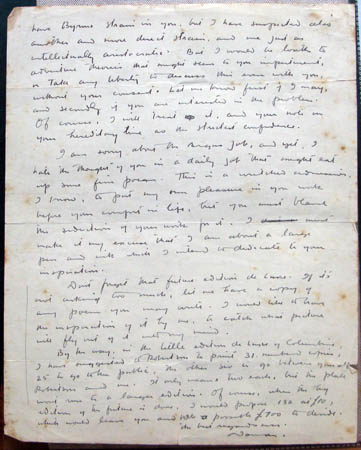 have Byrne strain in you, but I have suspected also
another and more direct strain, and one just as
intellectually aristocratic. But I would be loath to
advance theories that might seem to you impertinent,
or take any liberty to discuss this even with you,
without your consent. Let me know first if I may,
and secondly if you are interested in the problem.
Of course, I will treat it, and your notes on
your hereditary line as the strictest confidence.
I am sorry about the Job, and yet, I
hate the thought of you in a daily job that might eat
up some fine poem. This is a wretched
I know, to put my own pleasure in your work
before your comfort in life, but you must blame
the seduction of your work for it. I must
make it my excuse that I am about a large
pen and ink which I intend to dedicate to your
inspiration.
Don't forget that future edition de luxe. If it's
not asking too much, let me have a copy of
any poem you may write. I would like to have
the inspiration of it by me, to catch what picture
will fly out of it into my mind.
By the way, in the little edition de luxe of Columbine,
I have suggested to Robertson to print 31 numbered copies,
25 to go to the public, the other six to go between yourself
Robertson and me. It only means two each, but the plate
wont run to a larger edition. Of course, when the big
edition of the future is done, I would propose 150 at £10,
which would leave you and me a possible £700 to divide.
the best regards as ever